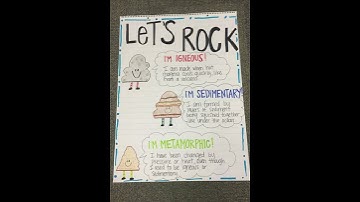 LeT'S ROCK
I'M IGNEOUS!
I am made when hot
magma cools quickly, like
from a volcano!
I'M SEDIMENTARY
I am formed by
layers of sediment
being squished together,
like under the ocean.
I'M METAMORPHIC!
I have been changed by
pressure or heat, even though
I used to be igneous or
sedimentary.